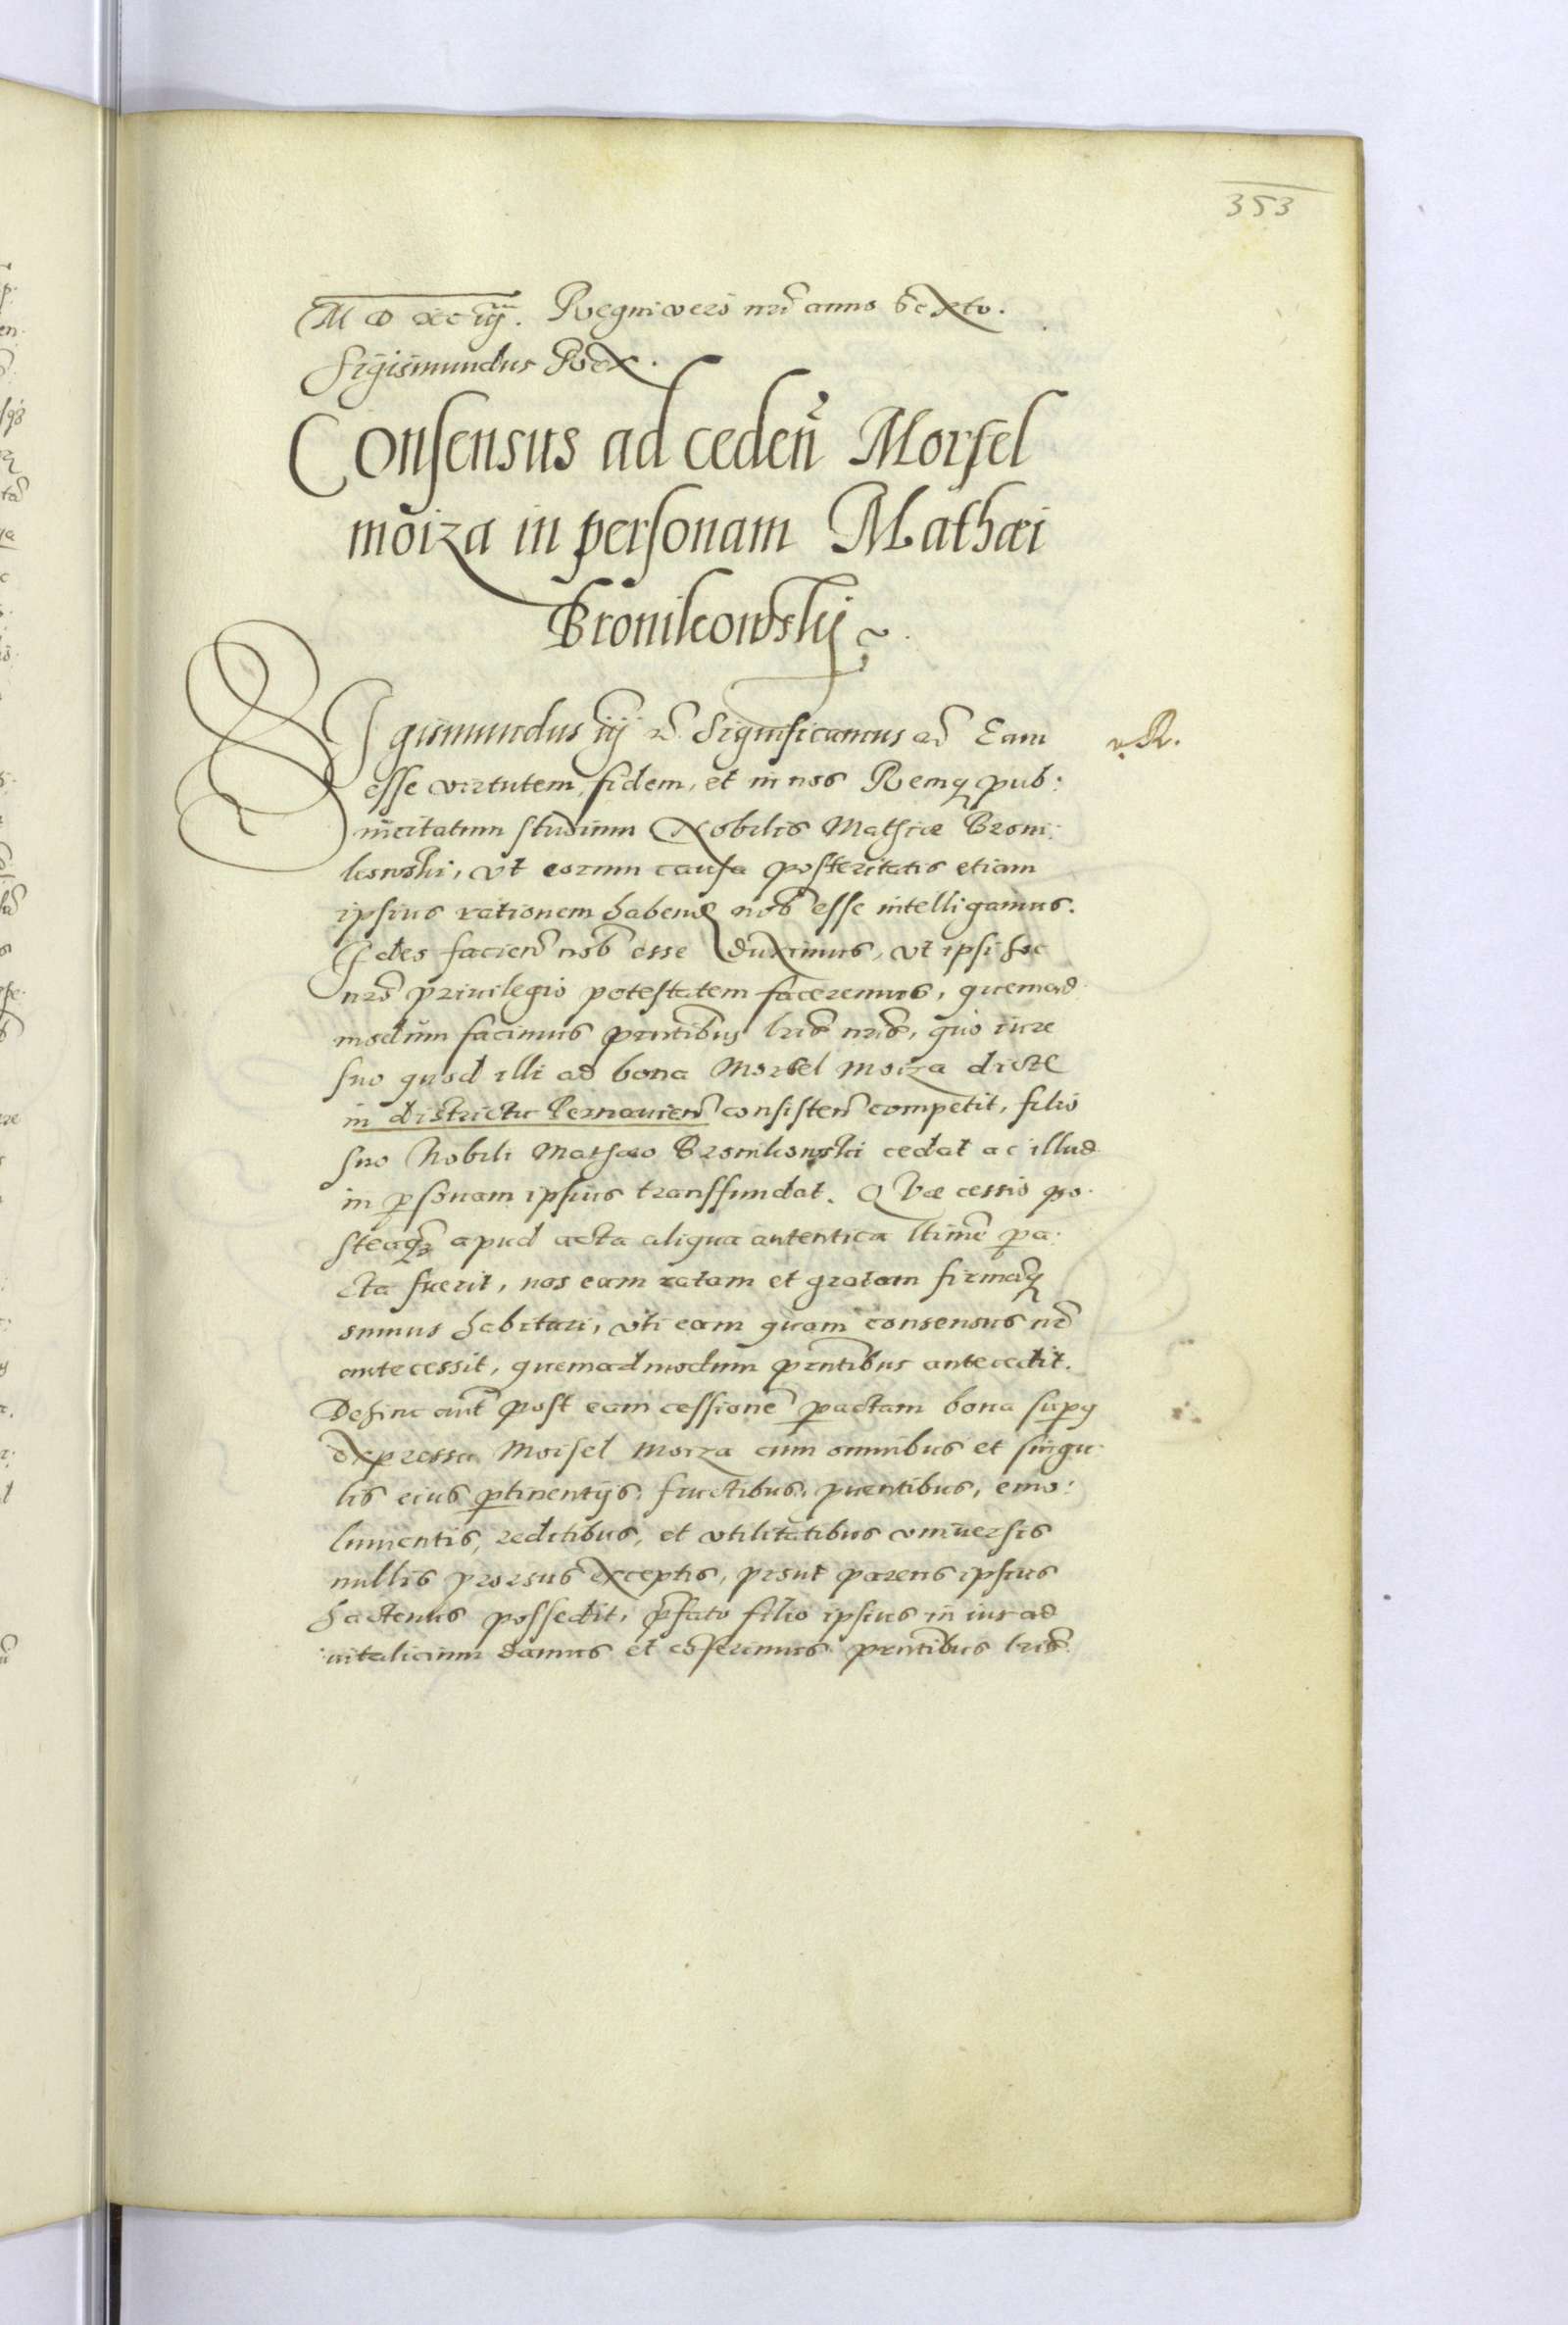 353
M D XC iij. Regni vero nrĩ anno Sexto.
Sigismundus Rex.
Consensus ad ceden̄ Morsel
moiza in personam Mathæi
Bronikowskij
Sigismundus iij Significamus Eam
esse virtutem, fidem, et in nos Remq pub:
meritatum studium Nobilis Mathiæ Broni:
kowski, vt eorum causa posteritatis etiam
ipsius rationem haben nob esse intelligamus.
Ideo facien nob esse duximus, vt ipsi hoc
nrõ priuilegio potestatem faceremus, quemad
modum facimus pñtibus lris nris, quo iure
suo quod illi ad bona Morsel Moiza dicte
in districtu Pernauien consisten competit, filio
suo Nobili Mathæo Bronikowski cedat ac illud
in psonam ipsius transfundat. Quæ cessio po:
steaqz apud acta aliqua autentica ltime pa:
cta fuerit, nos eam ratam et gratam firmaq
sumus habituri, vti eam quam consensus nr
antecessit, quemadmodum pñtibus antecedit.
Dehinc aut post eam cessione pactam bona supq
expressa Moisel Moiza cum omnibus et singu:
lis eius ptinentijs, fructibus, puentibus, emo:
lumentis, reditibus, et vtilitatibus vniuersis
nullis prorsus exceptis, prout parens ipsius
hactenus possedit, pfato filio ipsius in ius ad
uitalicium damus et coferimus pñtibus lris